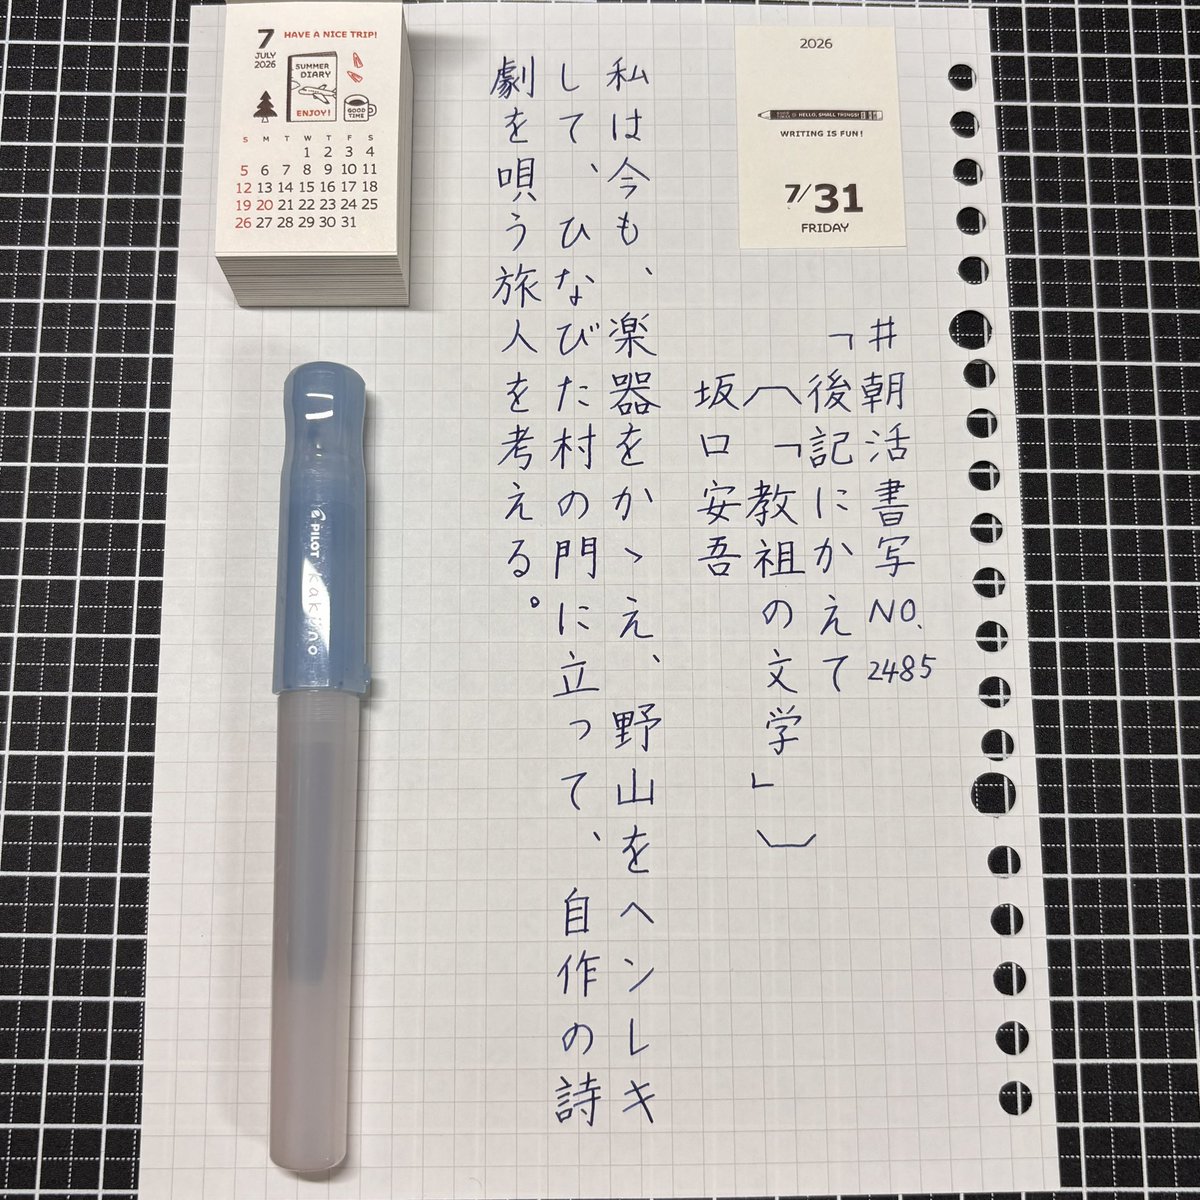 2026
HELLO, SMALL THINGS!
WRITING IS FUN!
7/31
FRIDAY
#朝活書写NO.2485
「後記にかえて
(「教祖の文学」)
坂口安吾
私は今も、楽器をかゝえ、野山をヘンレキ
して、ひなびた村の門に立って、自作の詩
劇を唄う旅人を考える。
7
JULY
2026
HAVE A NICE TRIP!
SUMMER
DIARY
ENJOY!
GOOD
TIME
S M T W T F S
1 2 3 4
5 6 7 8 9 10 11
12 13 14 15 16 17 18
19 20 21 22 23 24 25
26 27 28 29 30 31
PILOT kakuno